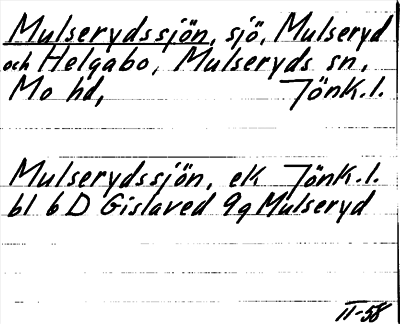 Mulserydssjön, sjö, Mulseryd
och Helgabo, Mulseryds sn,
Mo hd, Jönk.l.
Mulserydssjön, ek Jönk.l.
bl 6 D Gislaved 9g Mulseryd
II-58